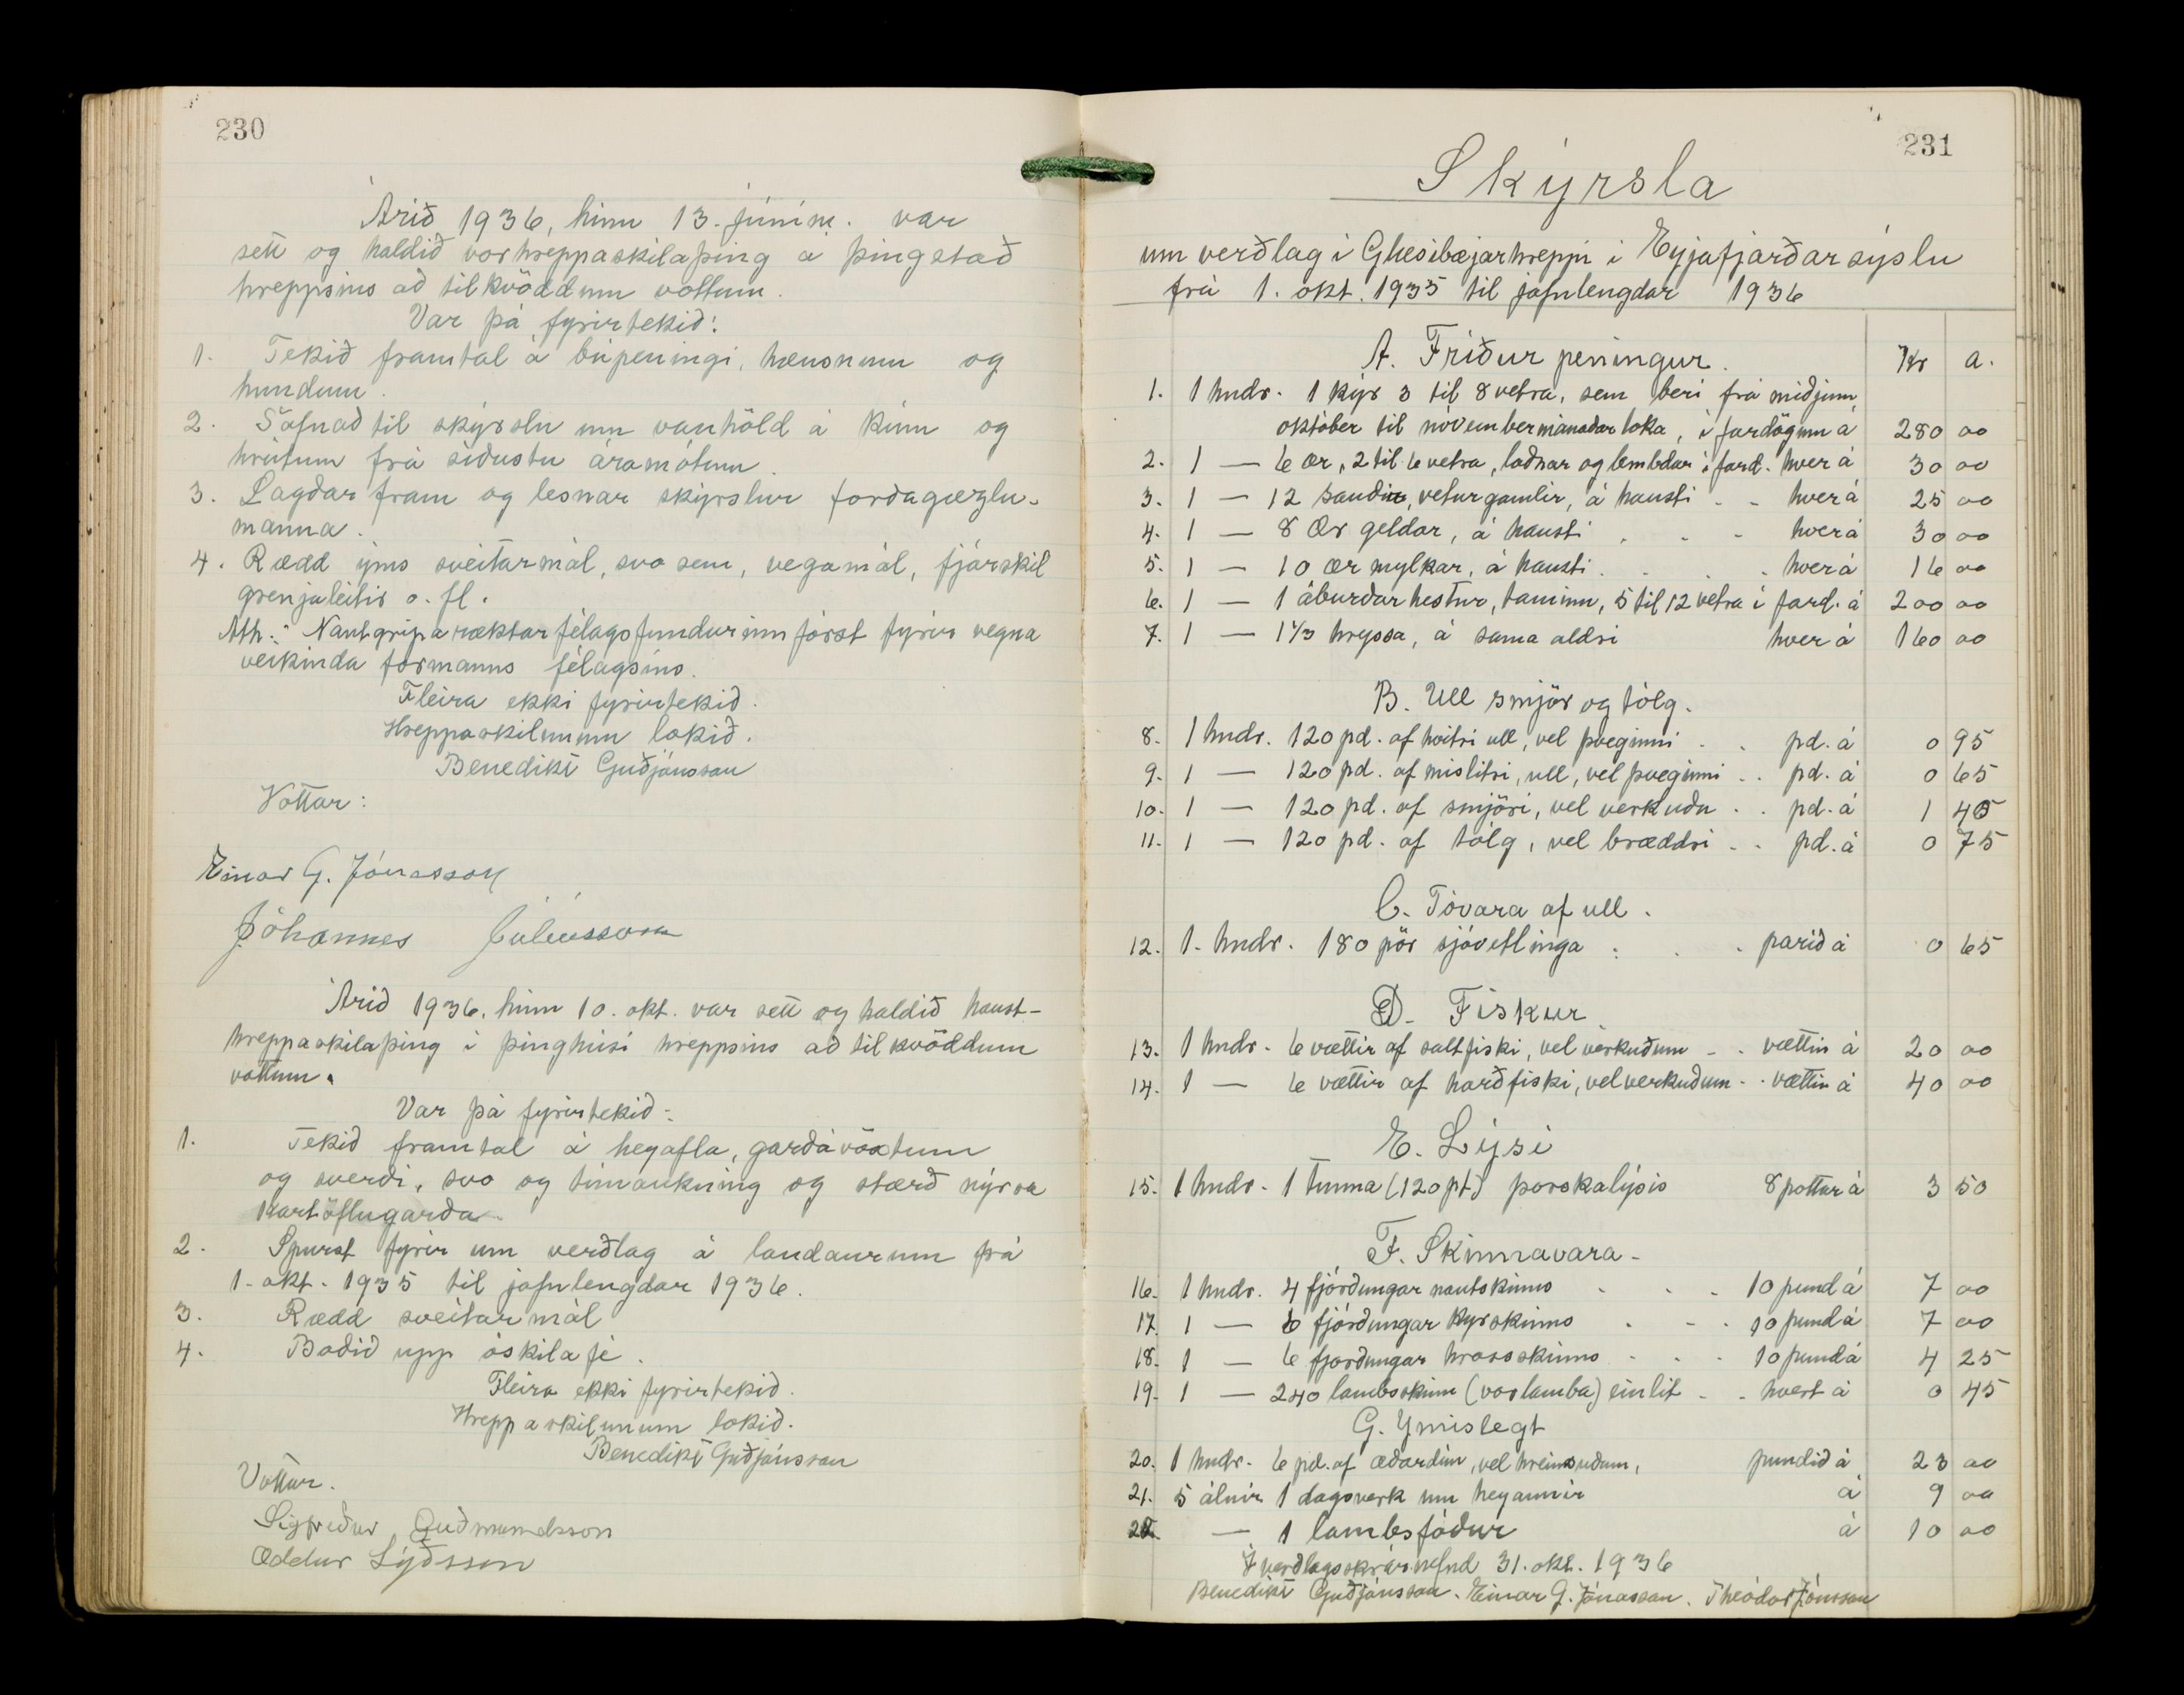 230
Árið 1936, hinn 13. júním. var
sett og haldið vorhreppaskilaþing á þingstað
hreppsins að tilkvöddum vottum.
Var þá fyrirtekið:
1. Tekið framtal á búpeningi, hænsnum og
hundum.
2. Safnað til skýrslu um vanhöld á kúm og
hrútum frá síðustu áramótum.
3. Lagðar fram og lesnar skýrslur forðagæzlu-
manna.
4. Rædd ýms sveitarmál, svo sem, vegamál, fjárskil
grenjaleitir o. fl.
Ath: Nautgriparæktarfélagsfundurinn fórst fyrir vegna
veikinda formanns félagsins.
Fleira ekki fyrirtekið.
Hreppaskilunum lokið.
Benedikt Guðjónsson
Vottar:
Einar G. Jónasson
Jóhannes Júlíusson
Árið 1936, hinn 10. okt. var sett og haldið haust-
hreppaskilaþing í þinghúsi hreppsins að tilkvöddum
vottum.
Var þá fyrirtekið:
1. Tekið framtal á heyafla, garðávöxtum
og sverði, svo og túnaukning og stærð nýrra
kartöflugarða.
2. Spurst fyrir um verðlag á landaurum frá
1. okt. 1935 til jafnlengdar 1936.
3. Rædd sveitarmál
4. Boðið upp óskilafé.
Fleira ekki fyrirtekið.
Hreppaskilunum lokið.
Benedikt Guðjónsson
Vottar.
Sigfreður Guðmundsson
Oddur Lýðsson
231
Skýrsla
um verðlag í Glæsibæjarhreppi í Eyjafjarðarsýslu
frá 1. okt. 1935 til jafnlengdar 1936
A. Fríður peningur. Kr a.
1. 1 hndr. 1 kýr 3 til 8 vetra, sem beri frá miðjum
október til nóvembermánaðarloka, í fardögum á 280 00
2. 1 — 6 ær, 2 til 6 vetra, loðnar og lembdar í fard. hver á 30 00
3. 1 — 12 sauðir, veturgamlir, á hausti - - hver á 25 00
4. 1 — 8 ær geldar, á hausti . - - hver á 30 00
5. 1 — 10 ær mylkar, á hausti . . . . hver á 16 00
6. 1 — 1 áburðarhestur, taminn, 5 til 12 vetra í fard. á 200 00
7. 1 — 1 1/3 hryssa, á sama aldri hver á 160 00
B. Ull smjör og tólg.
8. 1 hndr. 120 pd. af hvítri ull, vel þveginni - . pd. á 0 95
9. 1 — 120 pd. af mislitri, ull, vel þveginni . . pd. á 0 65
10. 1 — 120 pd. af smjöri, vel verkuðu . . pd. á 1 45
11. 1 — 120 pd. af tólg, vel bræddri . . pd. á 0 75
C. Tóvara af ull.
12. 1. hndr. 180 pör sjóvetlinga . . . parið á 0 65
D. Fiskur
13. 1 hndr. 6 vættir af saltfiski, vel verkuðum - . vættin á 20 00
14. 1 — 6 vættir af harðfiski, vel verkuðum . . vættin á 40 00
E. Lýsi
15. 1 hndr. 1 tunna (120 pt) þorskalýsis 8 pottar á 3 50
F. Skinnavara -
16. 1 hndr. 4 fjórðungar nautskinns . . . 10 pund á 7 00
17. 1 — 6 fjórðungar kýrskinns . - . 10 pund á 7 00
18. 1 — 6 fjórðungar hrossskinns - . . 10 pund á 4 25
19. 1 — 240 lambsskinn (vorlamba) einlit - . hvert á 0 45
G. Ýmislegt
20. 1 hndr. 6 pd. af æðardún, vel hreinsuðum, pundið á 23 00
21. 5 álnir 1 dagsverk um heyannir á 9 00
22. — 1 lambsfóður á 10 00
Í verðlagsskrárnefnd 31. okt. 1936
Benedikt Guðjónsson. Einar G. Jónasson. Theódór Jónsson